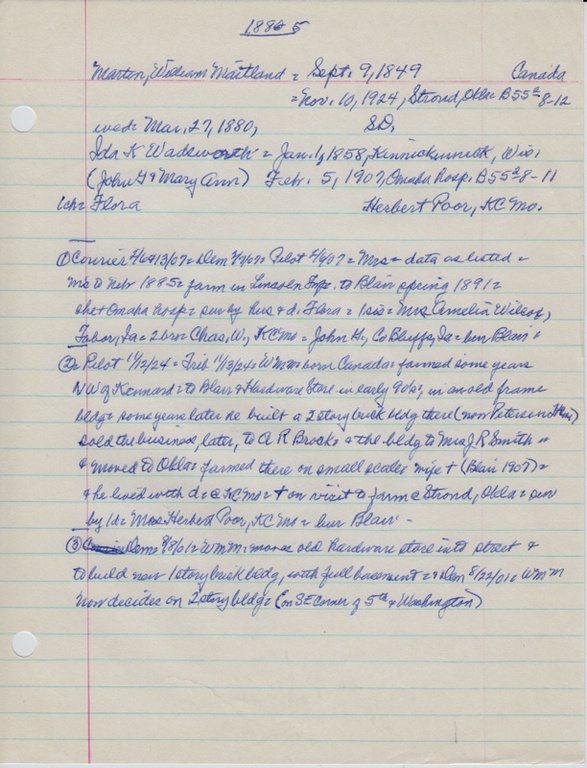 1885
Marten, William Maitland = Sept. 9, 1849 Canada
= Nov. 10, 1924, Stroud, Okla = B 55 8-12
wed = Mar. 27, 1880, SD,
Ida K Wadsworth = Jan. 1, 1858, Kinnickinnick, Wis,
(John H & Mary Ann) Febr. 5, 1907, Omaha Hosp. B 55 8-11
1ch = Flora Herbert Poor, KC Mo.
① Courier 2/13/07 = Dem 2/7/07 = Pilot 2/6/07 = Mrs = data as listed =
m'd to Nebr 1885 = farm in Lincoln Twp. to Blair spring 1891 =
she + Omaha Hosp = sur by hus & d. Flora = 1 sis = Mrs Amelia Wilcox,
Tabor, Ia = 2 bro = Chas, W, KC Mo = John H, Co Bluffs, Ia = bur Blair =
② = Pilot 11/12/24 = Trib 11/13/24 = W M m = born Canada = farmed some years
NW of Kennard = to Blair & Hardware Store in early 90's, in an old frame
bldg = some years later he built a 2 story brick bldg there (now Petersen
sold the business, later, to A R Brock & the bldg to Mrs J R Smith =
& moved to Okla = farmed there on small scale = wife + (Blair 1907) =
& he lived with d = @ KC Mo = + on visit to farm @ Stroud, Okla = sur
by 1d = Mrs Herbert Poor, KC Mo = bur Blair -
③ Dem = 8/8/01 = W m M = moves old Hardware store into street &
to build new 1 story brick bldg, with full basement = & Dem 8/22/01 = W m M
now decides on 2 story bldg = (on SE corner of 5th & Washington)